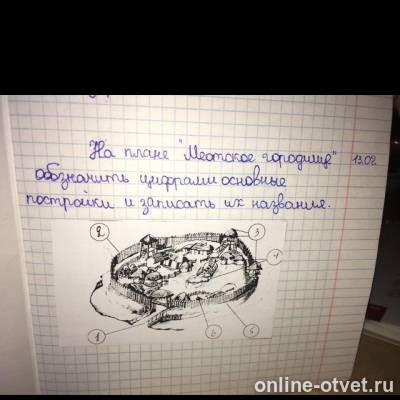 На плане "Меотское городище" 13.02
обозначить цифрами основные
постройки и записать их названия.
2
3
4
1
6
5
online-otvet.ru